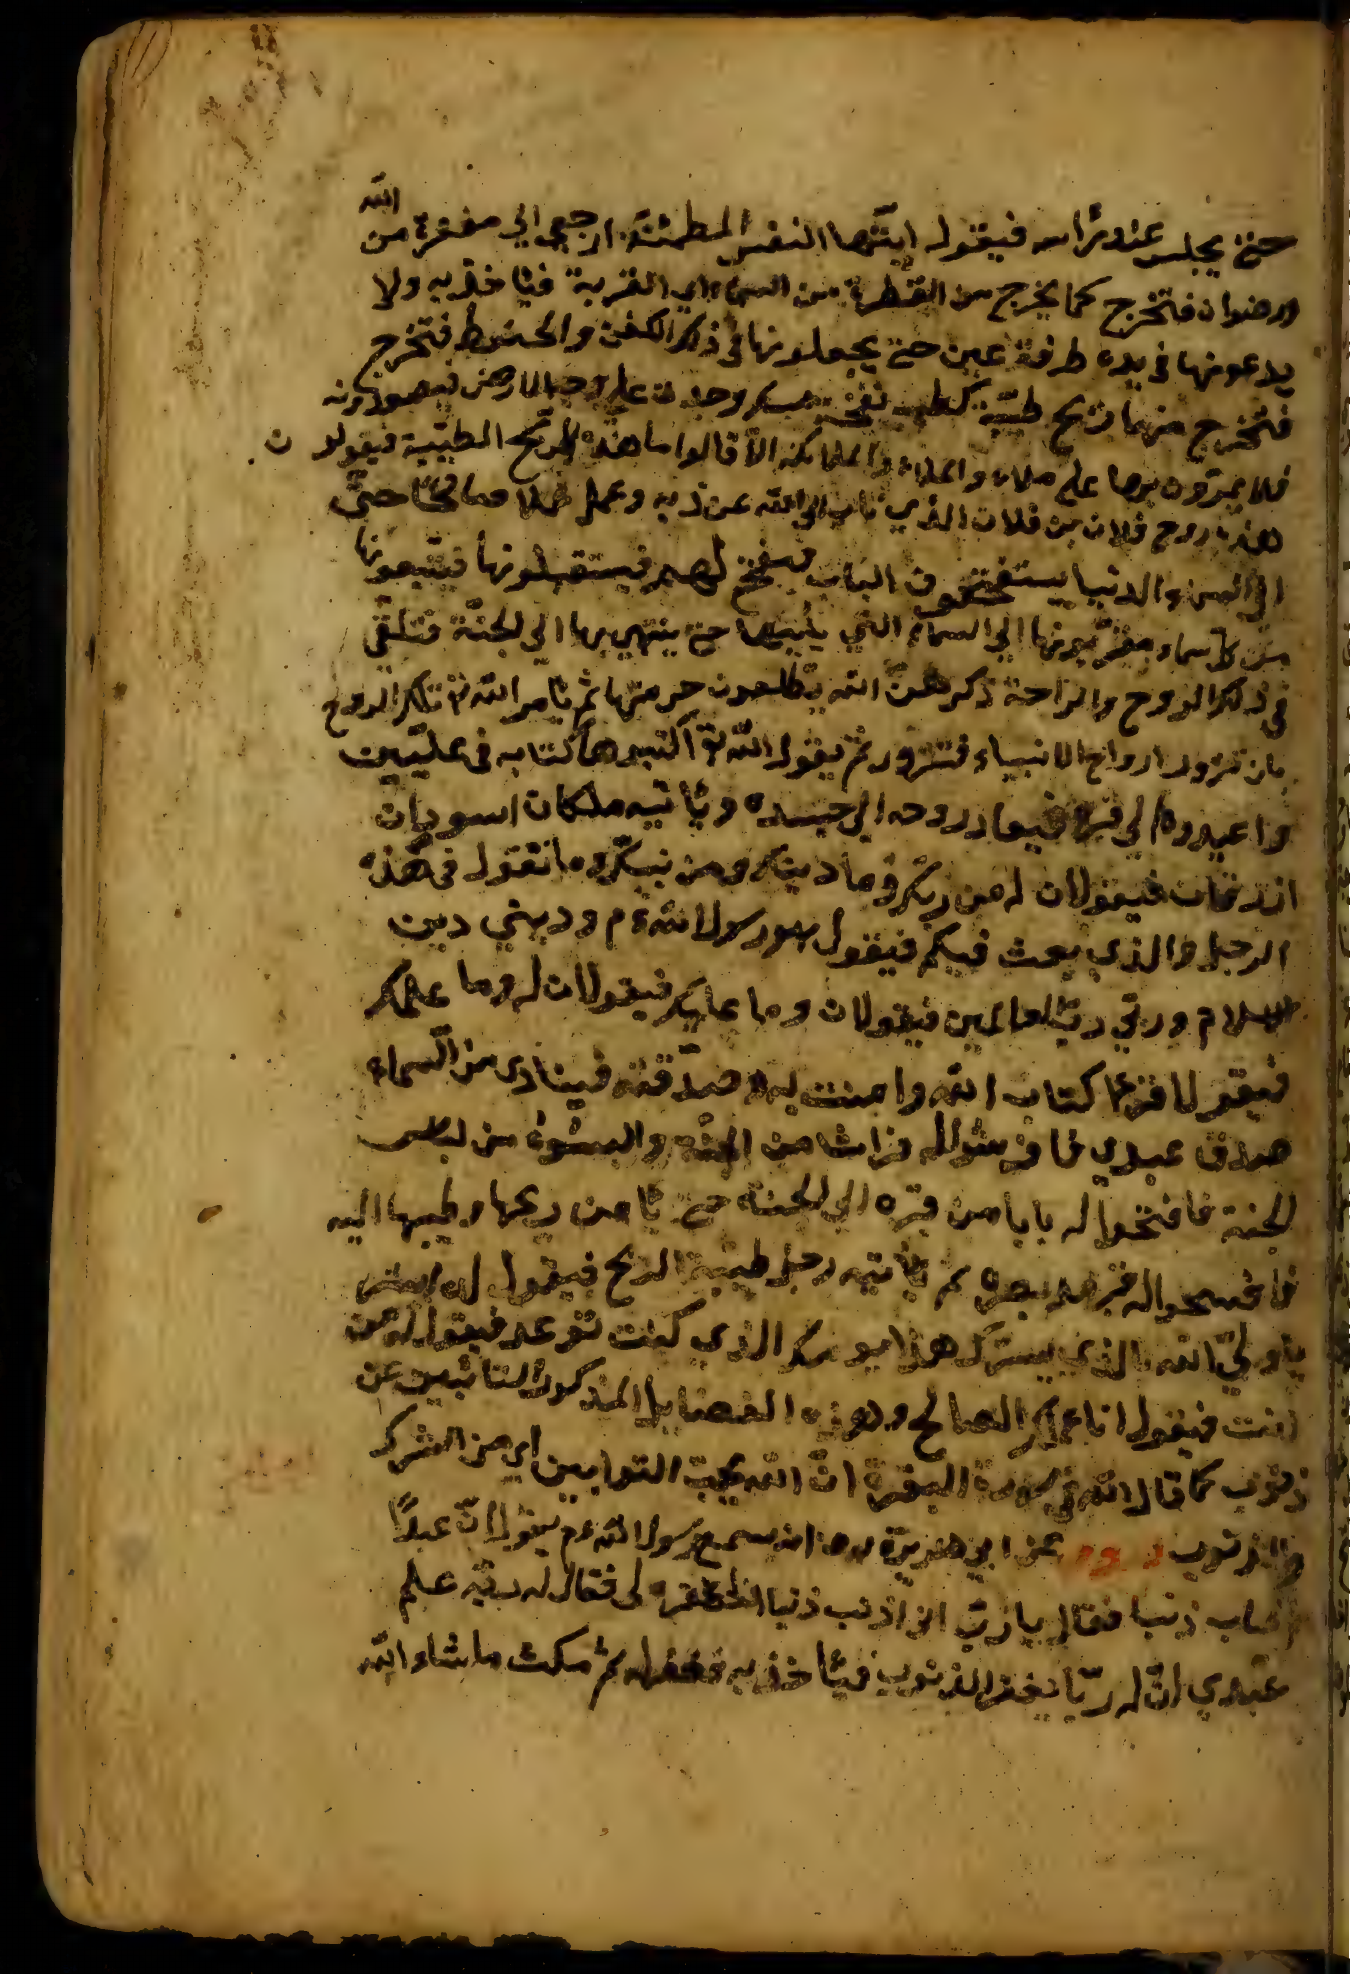 حتى يجلس عند رأسه فيقول ايتها النفس المطمئنة ارجعي الي مغفرة من الله
ورضوان فتخرج كما يخرج من القطرة من السماء اي القربة فيأخذ به ولا
يدعونها في يده طرفة عين حتى يجعلونها في ذلك الكفن والحنوط فتخرج
فتخرج منها ريح طيبة كطيب نفخة مسك وجدت علي وجه الارض فيصعدونه
فلا يمرون بها علي ملاء والملاء والملائكة الا قالوا ما هذه الريح الطيبة فيقولون
هذه روح فلان بن فلان الذي تاب الي الله عن ذنبه وعمل عملا صالحا حتى
الي السماء الدنيا يستفتحون الباب فيفتح لهم فيستقبلونها فيتبعونها
من كل سماء مقربونها الي السماء التي يليها حتى ينتهي بها الي الجنة فتلقى
في ذلك الروح والراحة ذكرهن الله يطلعون حرمتها ثم يأمر الله تلك الروح
بان تزور ارواح الانبياء فتزور ثم يقول الله تع اكتبوها كتابه في عليين
واعيدوه الي قبره فيعاد روحه الي جسده ويأتيه ملكان اسودان
ازرقان فيقولان له من ربك وما دينك ومن نبيك وما تقول في هذه
الرجل والذي بعث فيكم فيقول هو رسول الله عم وديني دين
الاسلام وربي رب العالمين فيقولان وما عليك فيقولان له وما علمك
فيقول اقرءا كتاب الله وامنت به وصدقته فينادى من السماء
صدق عبدي فافرشوا له فراشا من الجنة والبسوه من لباس
الجنة فافتحوا له بابا من قبره الي الجنة حتى يأمن ريحها وطيبها اليه
فافسحوا له قبره مد بصره ثم يأتيه رجل طيبة الريح فيقول له ابشر
يا ولي الله بالذي يسرك هذا يومك الذي كنت توعد فيقول له من
انت فيقول انا عملك الصالح وهذه الفضايل المذكورة للتائبين عن
ذنوب كما قال الله في سورة البقرة ان الله يحب التوابين اي من الشرك
والذنوب عن ابي هريرة رضه انه سمع رسول الله عم يقول ان عبدًا
اصاب ذنبا فقال يا رب اني اذنب ذنبا فاغفره لي فقال له ربه علم
عبدي ان له ربًا يغفر الذنوب فيأخذ به فغفر له ثم مكث ما شاء الله